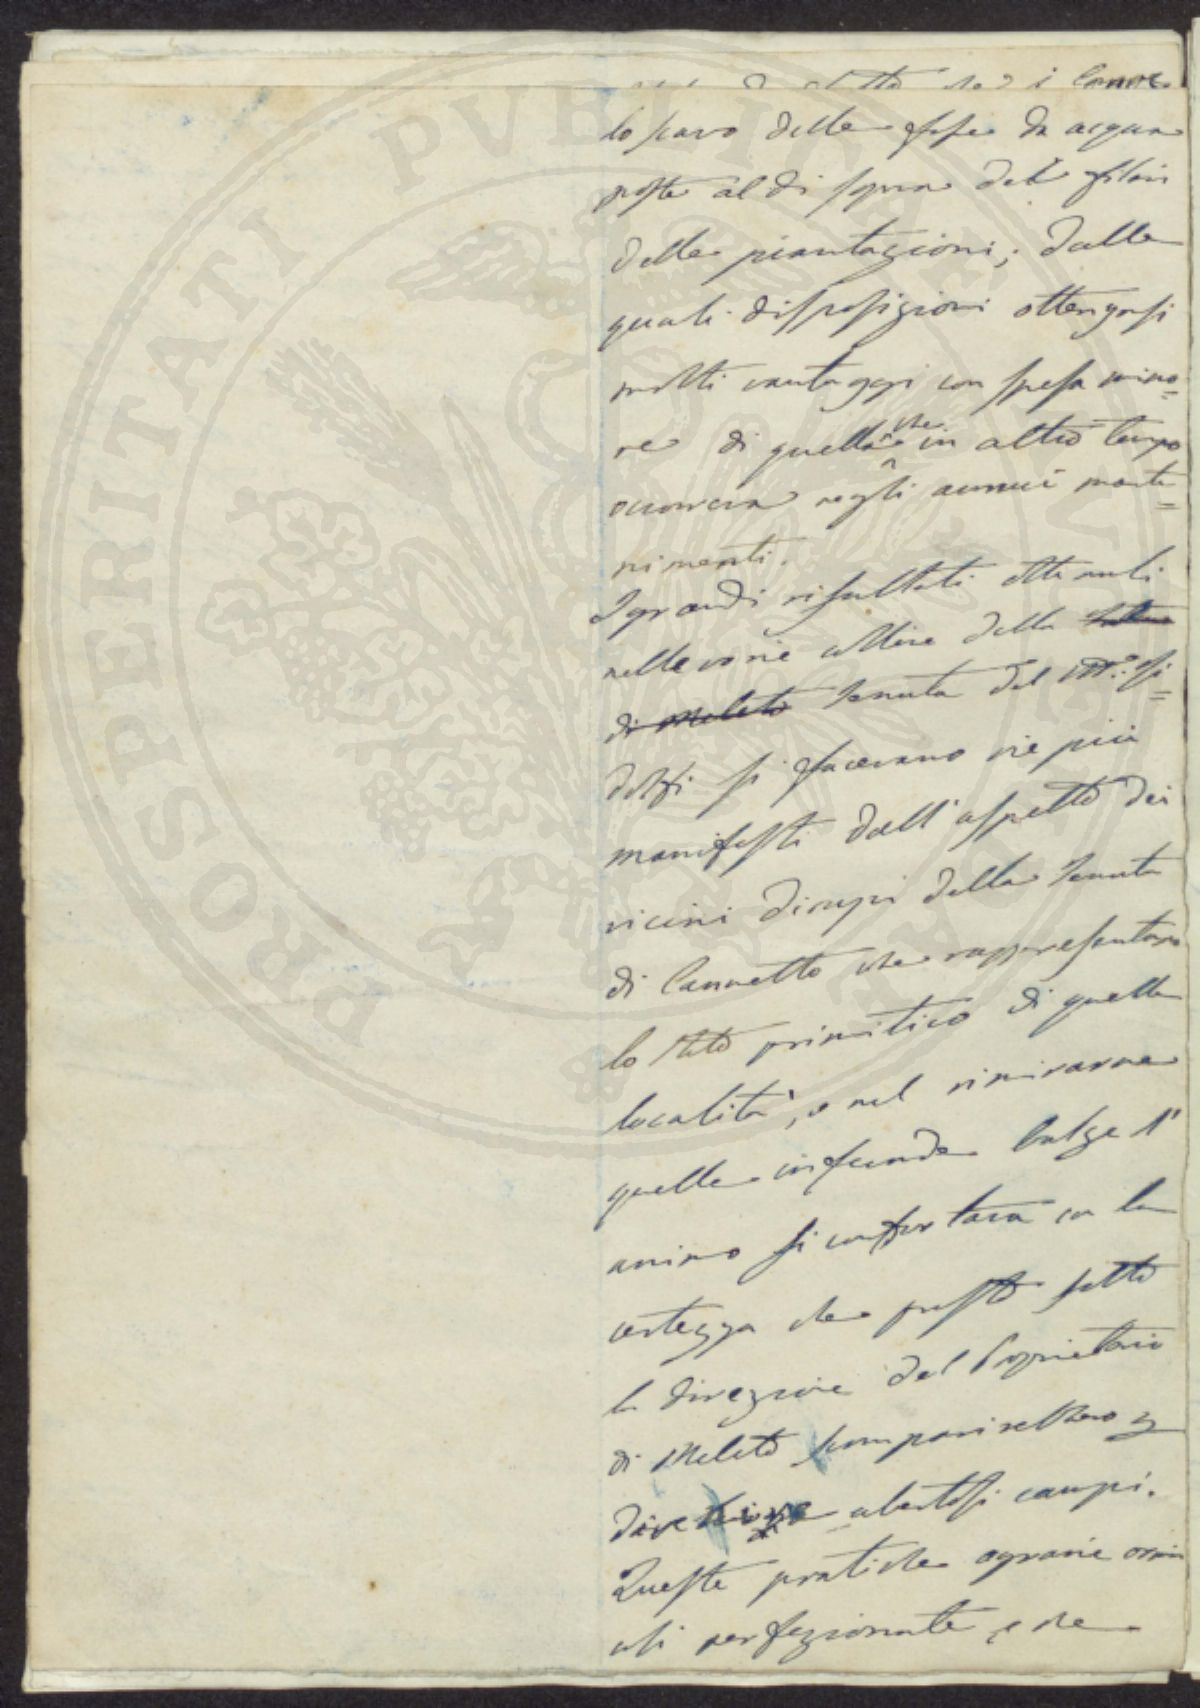 lo scavo delle fosse da acqua
poste al di sopra dei filari
delle piantagioni; dalle
quali disposizioni ottengonsi
molti vantaggi con spesa mino=
re di quella che in altro tempo
occorreva negli annui mante=
nimenti.
I grandi risultati ottenuti
nelle varie colline della
di Meleto tenuta del M.se Ri=
dolfi si facevano vie più
manifesti dall'aspetto dei
vicini dirupi della tenuta
di Cannetto che rappresentano
lo stato primitivo di quella
località, e nel rimirarne
quelle infeconde balze l'
animo si confortava con la
certezza che presto sotto
la direzione del Proprietario
di Meleto scomparirebbero
ubertosi campi.
Queste pratiche agrarie
così perfezionate, e che
PROSPERITATI PVBLICAE